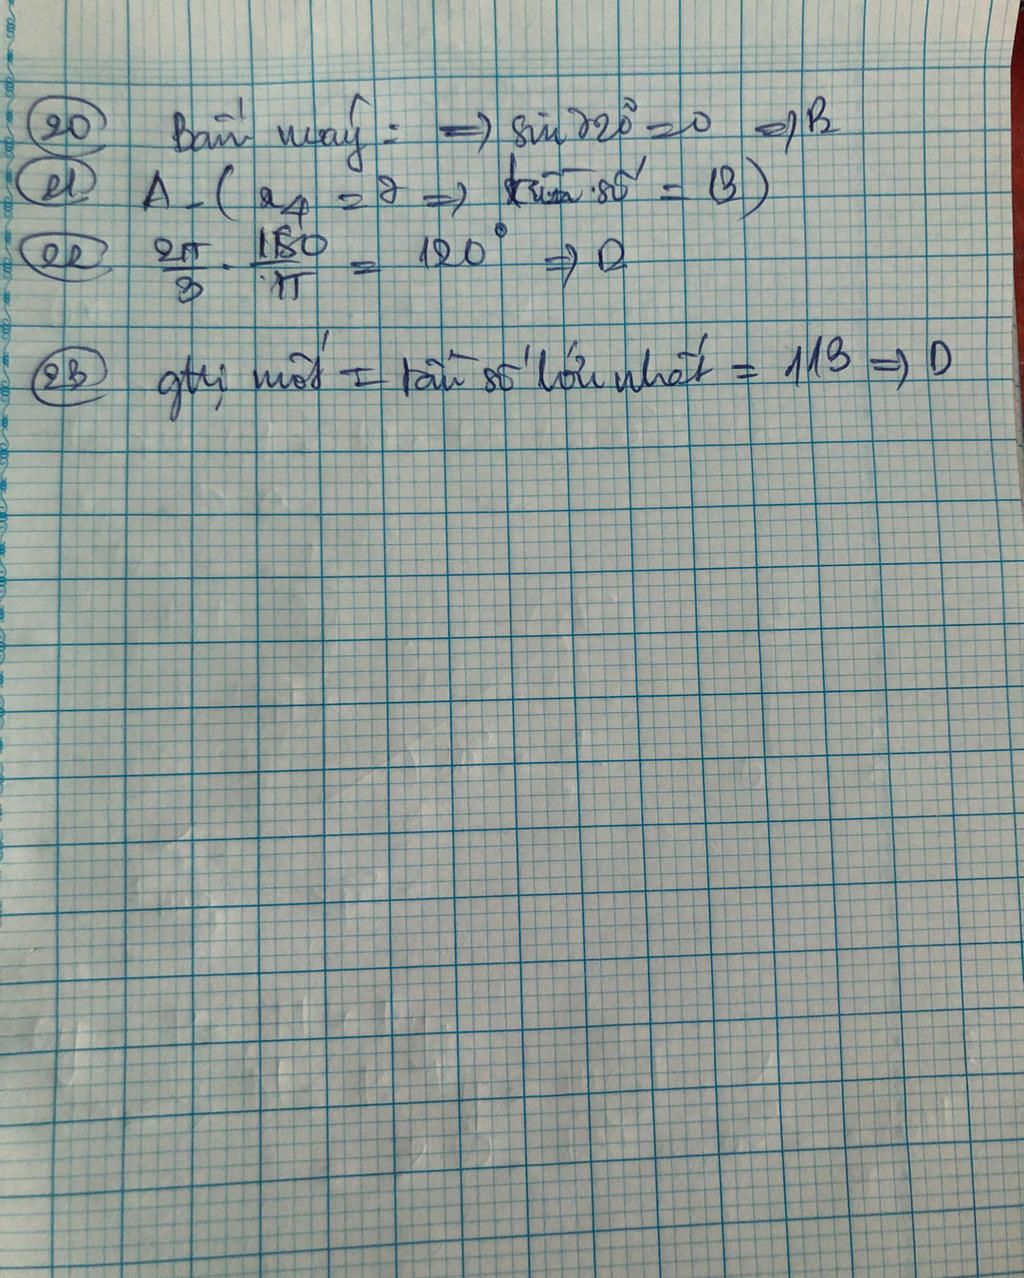 20 Bấm máy : => sin 720° = 0 => B
21 A - ( x4 = 8 => tần số = 13 )
22 2π/3 . 180/π = 120° => D
23 gtrị mốt = tần số lớn nhất = 113 => D